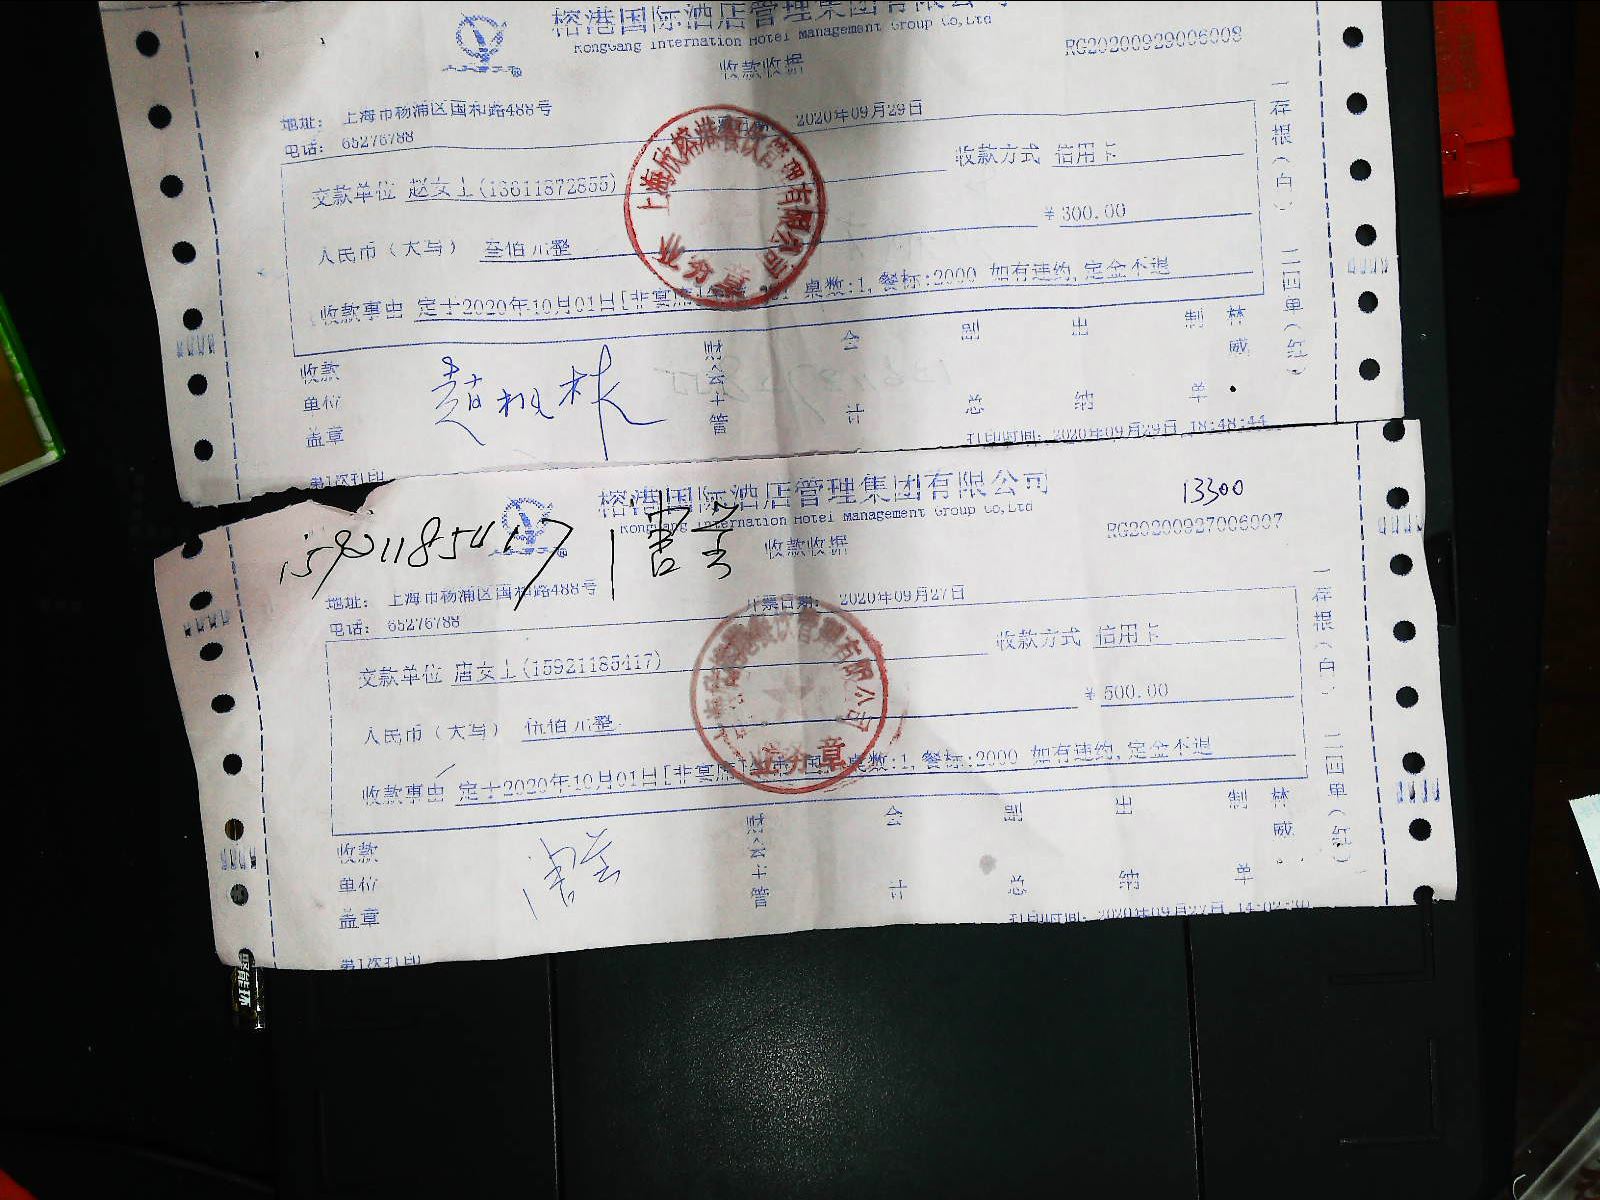 榕港国际酒店管理集团有限公司
RongGang Internation Hotel Management Group Co,Ltd
收款收据
RG20200929006008
地址： 上海市杨浦区国和路488号
电话： 65276788
2020年09月29日
收款方式 信用卡
交款单位 赵女士(13611872855)
￥300.00
人民币（大写） 叁佰元整
收款事由 定于2020年10月01日[非宴席] 桌数:1,餐标:2000 如有违约,定金不退
上海欣榕港餐饮管理有限公司
业务章
一存根(白) 二四单(红)
收款单位盖章
会计
副总
出纳
制单
林威
打印时间: 2020年09月29日 18:48:44
第1次打印
榕港国际酒店管理集团有限公司
13300
RongGang Internation Hotel Management Group Co,Ltd
RG20200927006007
15921185417
收款收据
地址： 上海市杨浦区国和路488号
电话： 65276788
开票日期： 2020年09月27日
收款方式 信用卡
交款单位 唐女士(15921185417)
￥500.00
人民币（大写） 伍佰元整
收款事由 定于2020年10月01日[非宴席] 桌数:1,餐标:2000 如有违约,定金不退
业务章
一存根(白) 二四单(红)
收款单位盖章
会计
副总
出纳
制单
林威
打印时间: 2020年09月27日 14:02:30
第1次打印
聚能环